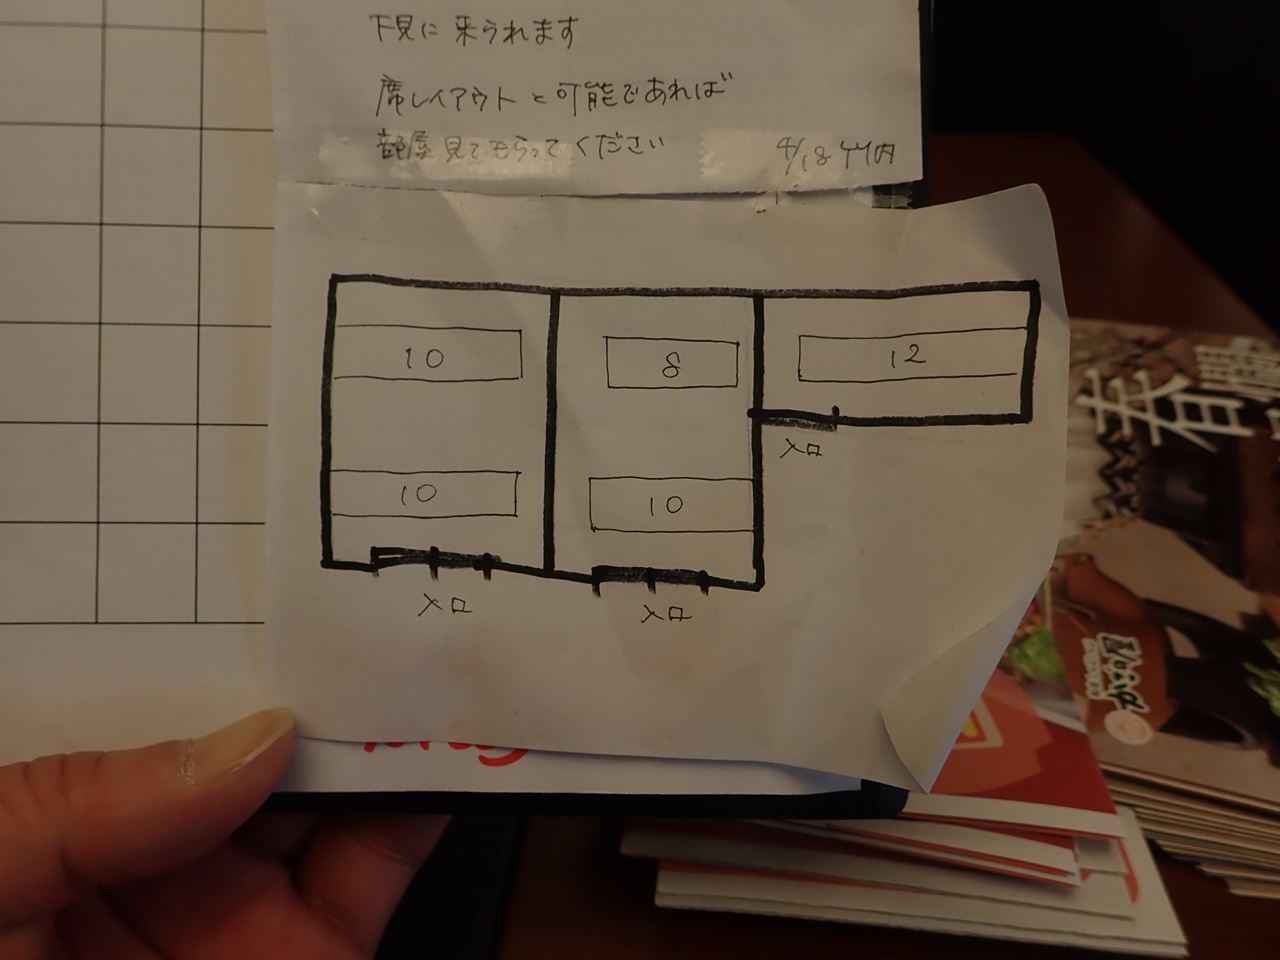 下見に来られます
席レイアウトと可能であれば
部屋見てもらってください
4/18 竹内
10
8
12
10
10
入口
入口
入口
春